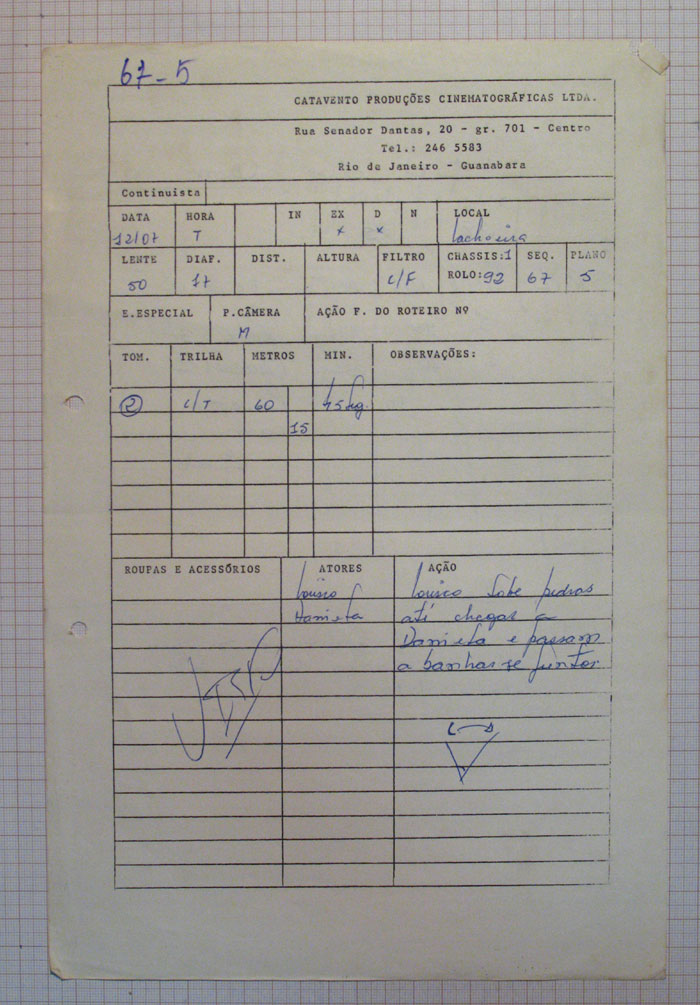 67-5
CATAVENTO PRODUÇÕES CINEMATOGRÁFICAS LTDA.
Rua Senador Dantas, 20 - gr. 701 - Centro
Tel.: 246 5583
Rio de Janeiro - Guanabara
Continuista
DATA HORA IN EX D N LOCAL
12/07 T x x Cachoeira
LENTE DIAF. DIST. ALTURA FILTRO CHASSIS:1 SEQ. PLANO
50 17 C/F ROLO:92 67 5
E.ESPECIAL P.CÂMERA AÇÃO F. DO ROTEIRO Nº
M
TOM. TRILHA METROS MIN. OBSERVAÇÕES:
2 C/T 60 45
15
ROUPAS E ACESSÓRIOS ATORES AÇÃO
Daniela
sobe pedras
até chegar a
Daniela e passam
a banhar-se juntos